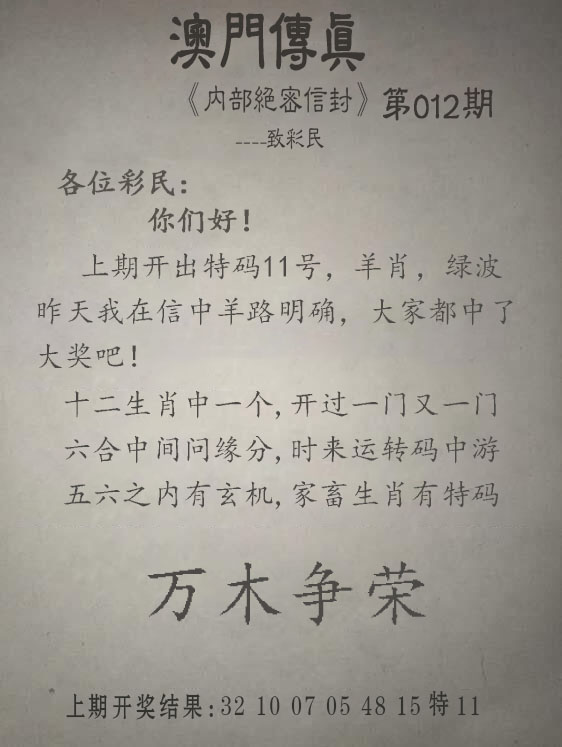 澳門傳真
《内部絕密信封》第012期
----致彩民
各位彩民:
你们好!
上期开出特码11号，羊肖，绿波
昨天我在信中羊路明确，大家都中了
大奖吧!
十二生肖中一个,开过一门又一门
六合中间问缘分,时来运转码中游
五六之内有玄机,家畜生肖有特码
万木争荣
上期开奖结果:32 10 07 05 48 15 特 11